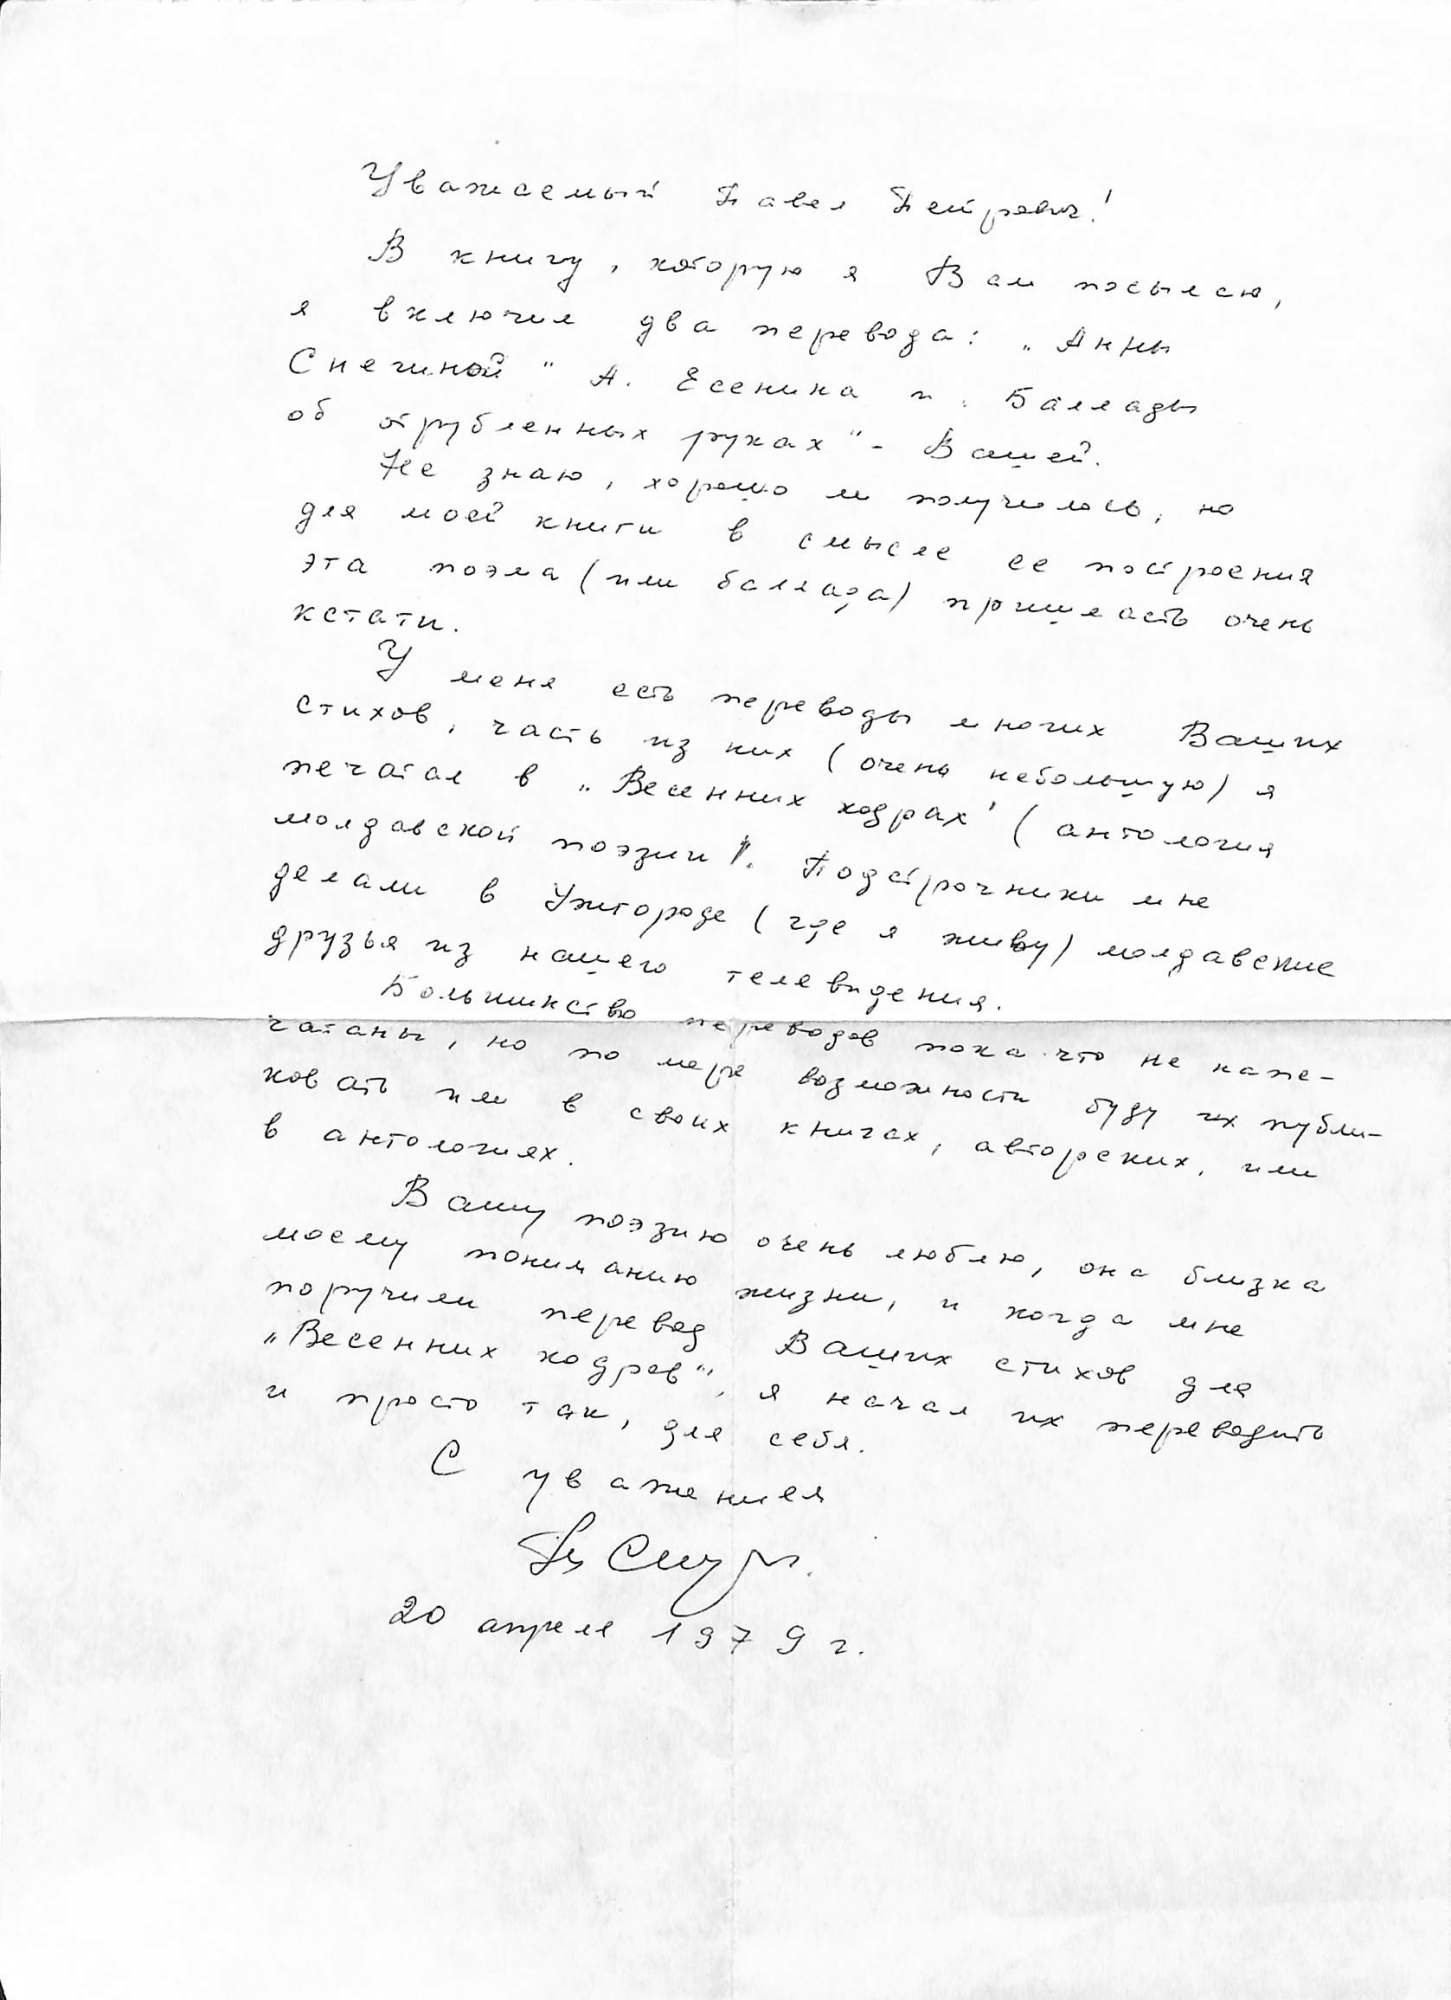 Уважаемый Павел Петрович!
В книгу, которую я Вам посылаю,
я включил два перевода: „Анны
Снегиной" А. Есенина и „Баллады
об отрубленных руках" - Вашей.
Не знаю, хорошо ли получилось, но
для моей книги в смысле ее построения
эта поэма (или баллада) пришлась очень
кстати.
У меня есть переводы многих Ваших
стихов, часть из них (очень небольшую) я
печатал в „Весенних кодрах" (антология
молдавской поэзии). Подстрочники мне
делали в Ужгороде (где я живу) молдавские
друзья из нашего телевидения.
Большинство переводов пока что не напе-
чатаны, но по мере возможности буду их публи-
ковать или в своих книгах, авторских, или
в антологиях.
Вашу поэзию очень люблю, она близка
моему пониманию жизни, и когда мне
поручили перевод Ваших стихов для
„Весенних кодров", я начал их переводить
и просто так, для себя.
С уважением
20 апреля 1979 г.